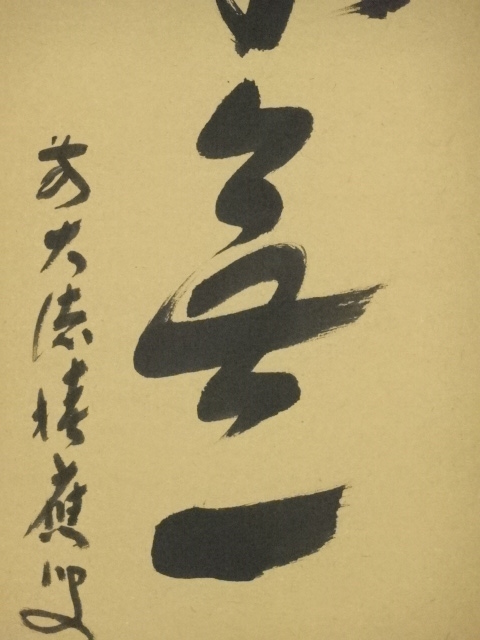 無一
前大徳積應叟